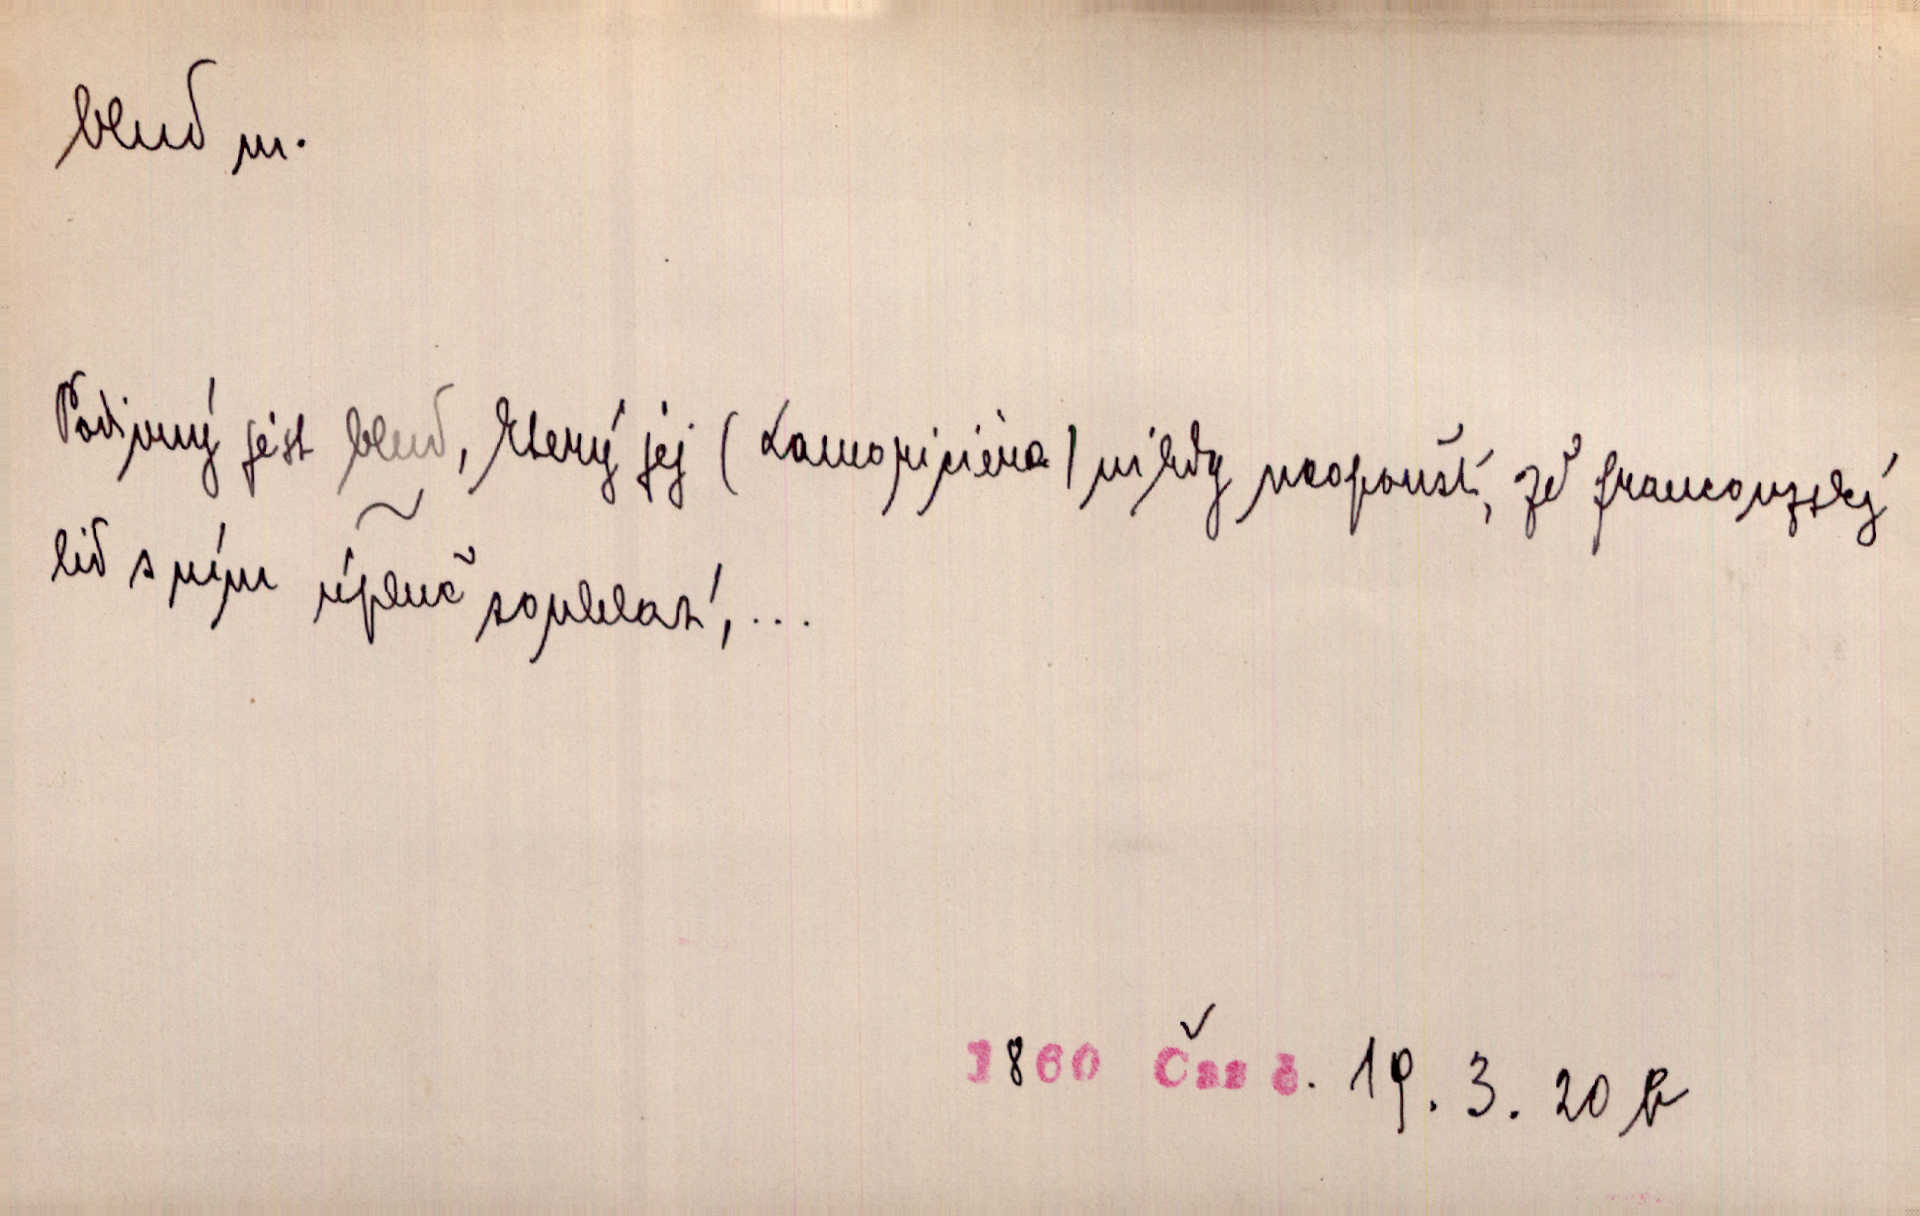 blud m.
Podivný jest blud, který jej (Lamoricièra) nikdy neopouští, že francouzský
lid s ním úplně souhlasí, ...
1860 Čas č. 19. 3. 20 b